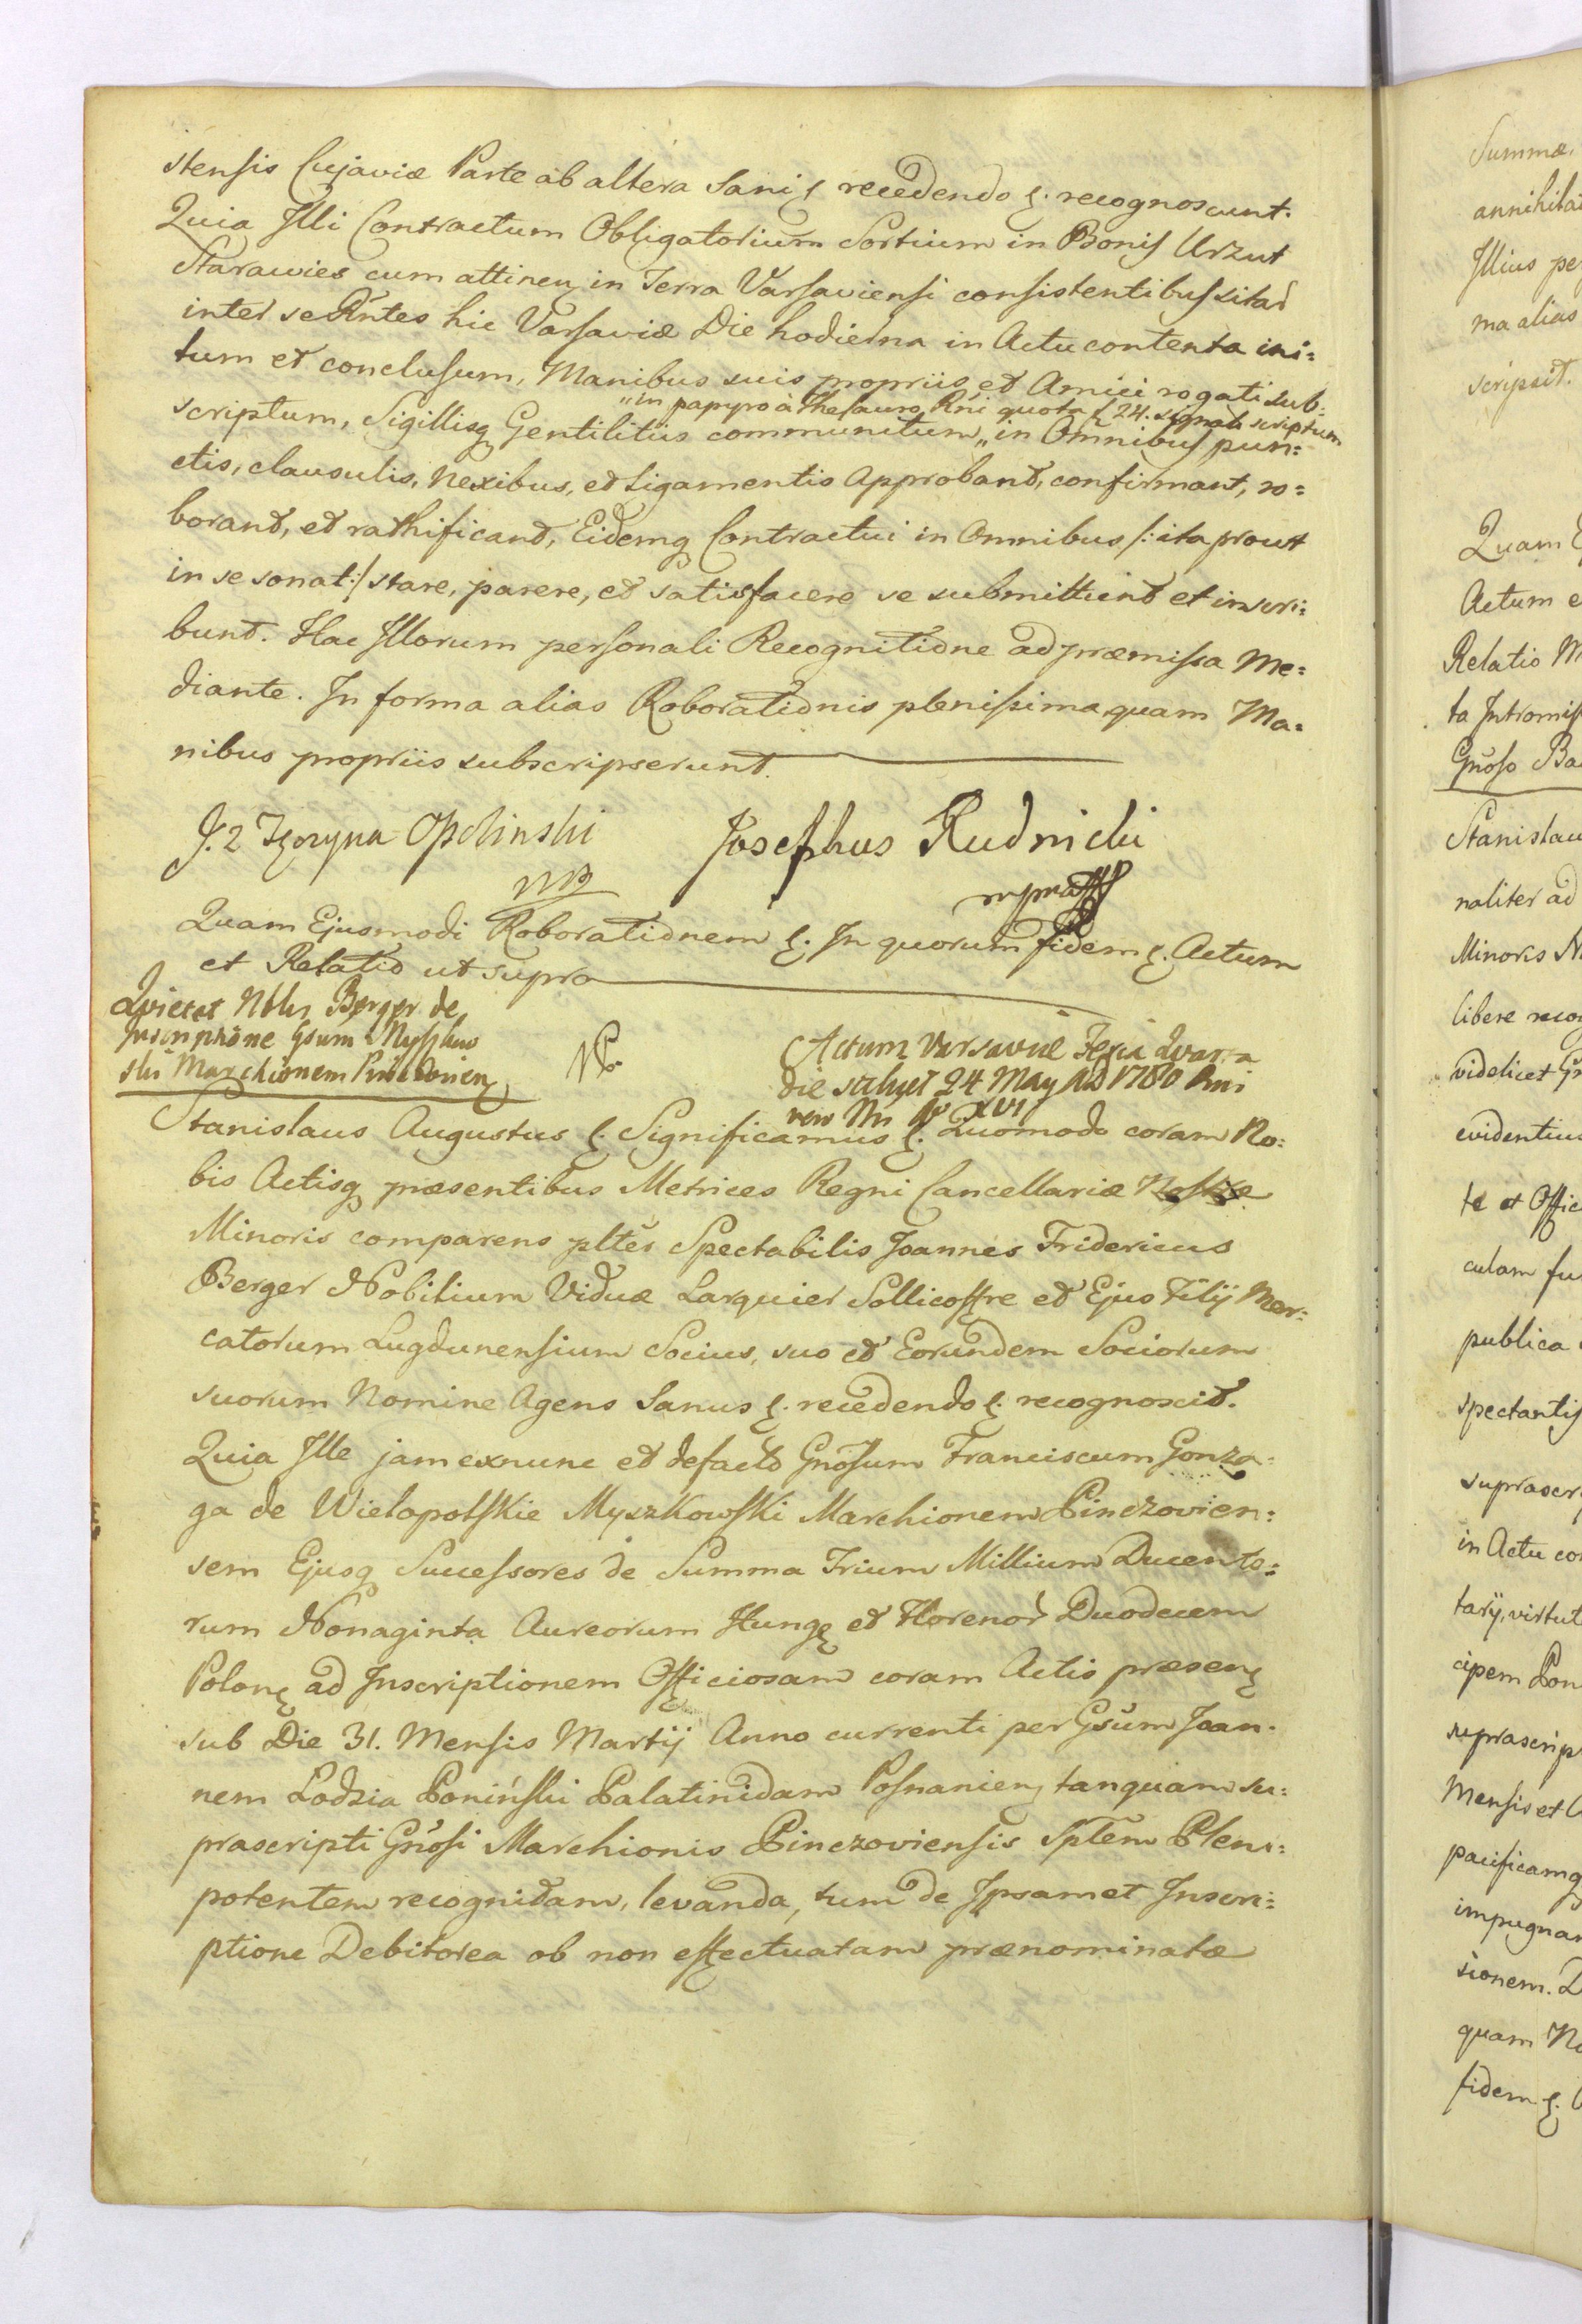 stensis Cujaviæ Parte ab altera Sani &. recedendo &. recognoscunt.
Quia Illi Contractum Obligatorium Sortium in Bonis Urzut
Starawies cum attinen in Terra Varsaviensi consistentibus sitar
inter se Rntes hic Varsaviæ Die hodierna in Actu contenta ini=
tum et conclusum, Manibus suis propriis et Amici rogati sub=
"in papyro à Thesauro Rni quota f 24. signata scriptum
scriptum, Sigillisq Gentilitiis communitum " in Omnibus pun=
ctis, clausulis, Nexibus, et Ligamentis Approbant, confirmant, ro=
borant, et rathificant, Eidemq Contractui in Omnibus /: ita prout
in se sonat :/ stare, parere, et satisfacere se submittunt et inscri=
bunt. Hac Illorum personali Recognitione ad præmissa Me=
diante. In forma alias Roborationis plenissima quam Ma=
nibus propriis subscripserunt.
J. z Tęczyna Opolinski
Josephus Rudnicki
mp
mpria
Quam Ejusmodi Roborationem &. In quorum fidem &. Actum
et Relatio ut supra
Quietat Nblis Berger de
Inscriptione Gsum Myszkow
ski Marchionem Pinczovien
Actum Varsaviæ Feria Quarta
die scilicet 24 May AD 1780 Rni
vero Nri XVI
Stanislaus Augustus &. Significamus &. Quomodo coram No=
bis Actisq præsentibus Metrices Regni Cancellariæ Nostræ
Minoris comparens pltēr Spectabilis Joannes Fridericus
Berger Nobilium Viduæ Larguier Sollicoffre et Ejus Filij Mer=
catorum Lugdunensium Socius, suo et Eorundem Sociorum
suorum Nomine Agens Sanus &. recedendo &. recognoscit.
Quia Ille jam exnunc et defacto Gnosum Franciscum Gonza=
ga de Wielopolskie Myszkowski Marchionem Pinczovien=
sem Ejusq Successores de Summa Trium Millium Ducento=
rum Nonaginta Aureorum Hung et Florenor Duodecem
Polon ad Inscriptionem Officiosam coram Actis præsen
sub Die 31. Mensis Martij Anno currenti per Gsum Joan=
nem Lodzia Poniński Palatinidam Posnanien tanquam su=
prascripti Gnosi Marchionis Pinczoviensis Spltem Pleni=
potentem recognitam, levanda, tum de Ipsamet Inscri=
ptione Debitorea ob non effectuatam prænominatæ
Summæ
Illius pe
ma alias
scripsit.
Quam E
Actum e
Relatio M
ta Intromiss
Gnoso Ba
Stanislau
naliter ad
Minoris N
libere recog
videlicet Gn
evidentius
te et Offic
culam fu
publica
spectantis
suprascr
in Actu co
tarij, virtut
cipem Pon
suprascrip
Mensis et
pacificamq
impugnan
sionem. D
quam N
fidem &.